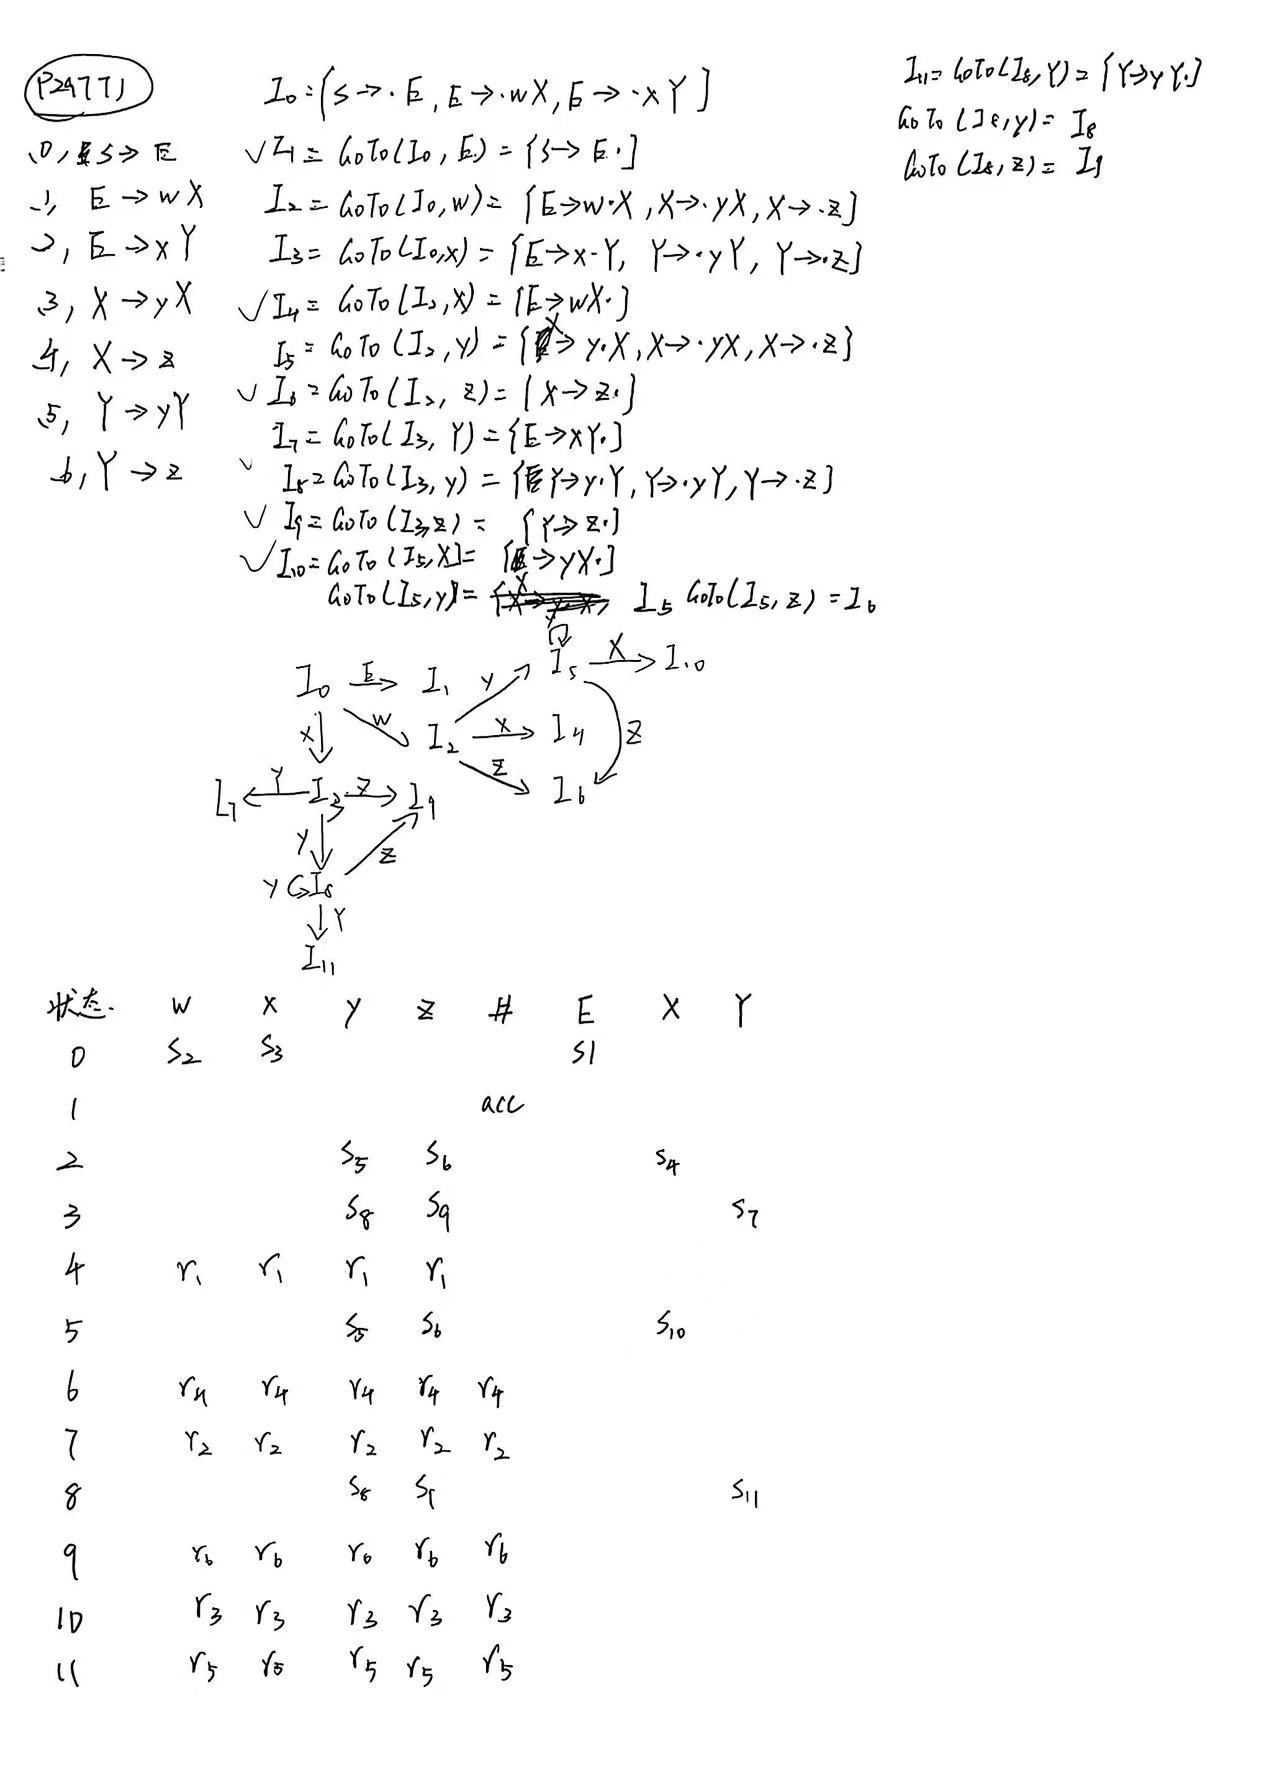 P297 T1
0, S→E
1, E→wX
2, E→xY
3, X→yX
4, X→z
5, Y→yY
6, Y→z
I0={S→·E, E→·wX, E→·xY}
✓I1=GoTo(I0, E)={S→E·}
I2=GoTo(I0, w)={E→w·X, X→·yX, X→·z}
I3=GoTo(I0,x)={E→x·Y, Y→·yY, Y→·z}
✓I4=GoTo(I2,X)={E→wX·}
I5=GoTo(I2,y)={X→y·X, X→·yX, X→·z}
✓I6=GoTo(I2, z)={X→z·}
I7=GoTo(I3, Y)={E→xY·}
✓ I8=GoTo(I3, y)={Y→y·Y, Y→·yY, Y→·z}
✓ I9=GoTo(I3,z)={Y→z·}
✓I10=GoTo(I5,X)={→yX·}
GoTo(I5,y)= I5 GoTo(I5, z)=I6
I11=GoTo(I8,Y)={Y→yY·}
GoTo(I8,y)=I8
GoTo(I8,z)=I9
y
I0 E→ I1 y I5 X→ I10
x w I2 X→ I4 z
z
I7 ←Y I3 z→ I9 I6
y z
y I8
↓Y
I11
状态. w x y z # E X Y
0 S2 S3 S1
1 acc
2 S5 S6 S4
3 S8 S9 S7
4 r1 r1 r1 r1
5 S5 S6 S10
6 r4 r4 r4 r4 r4
7 r2 r2 r2 r2 r2
8 S8 S9 S11
9 r6 r6 r6 r6 r6
10 r3 r3 r3 r3 r3
11 r5 r5 r5 r5 r5